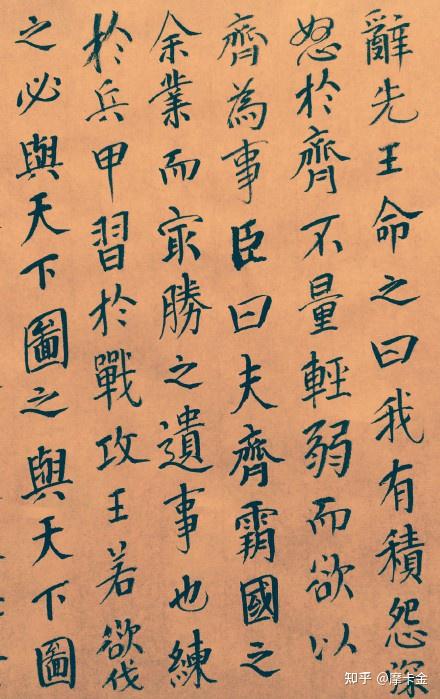 辭先王命之曰我有積怨深
怒於齊不量輕弱而欲以
齊為事臣曰夫齊霸國之
余業而㝡勝之遺事也練
於兵甲習於戰攻王若欲伐
之必與天下圖之與天下圖
知乎 @摩卡金